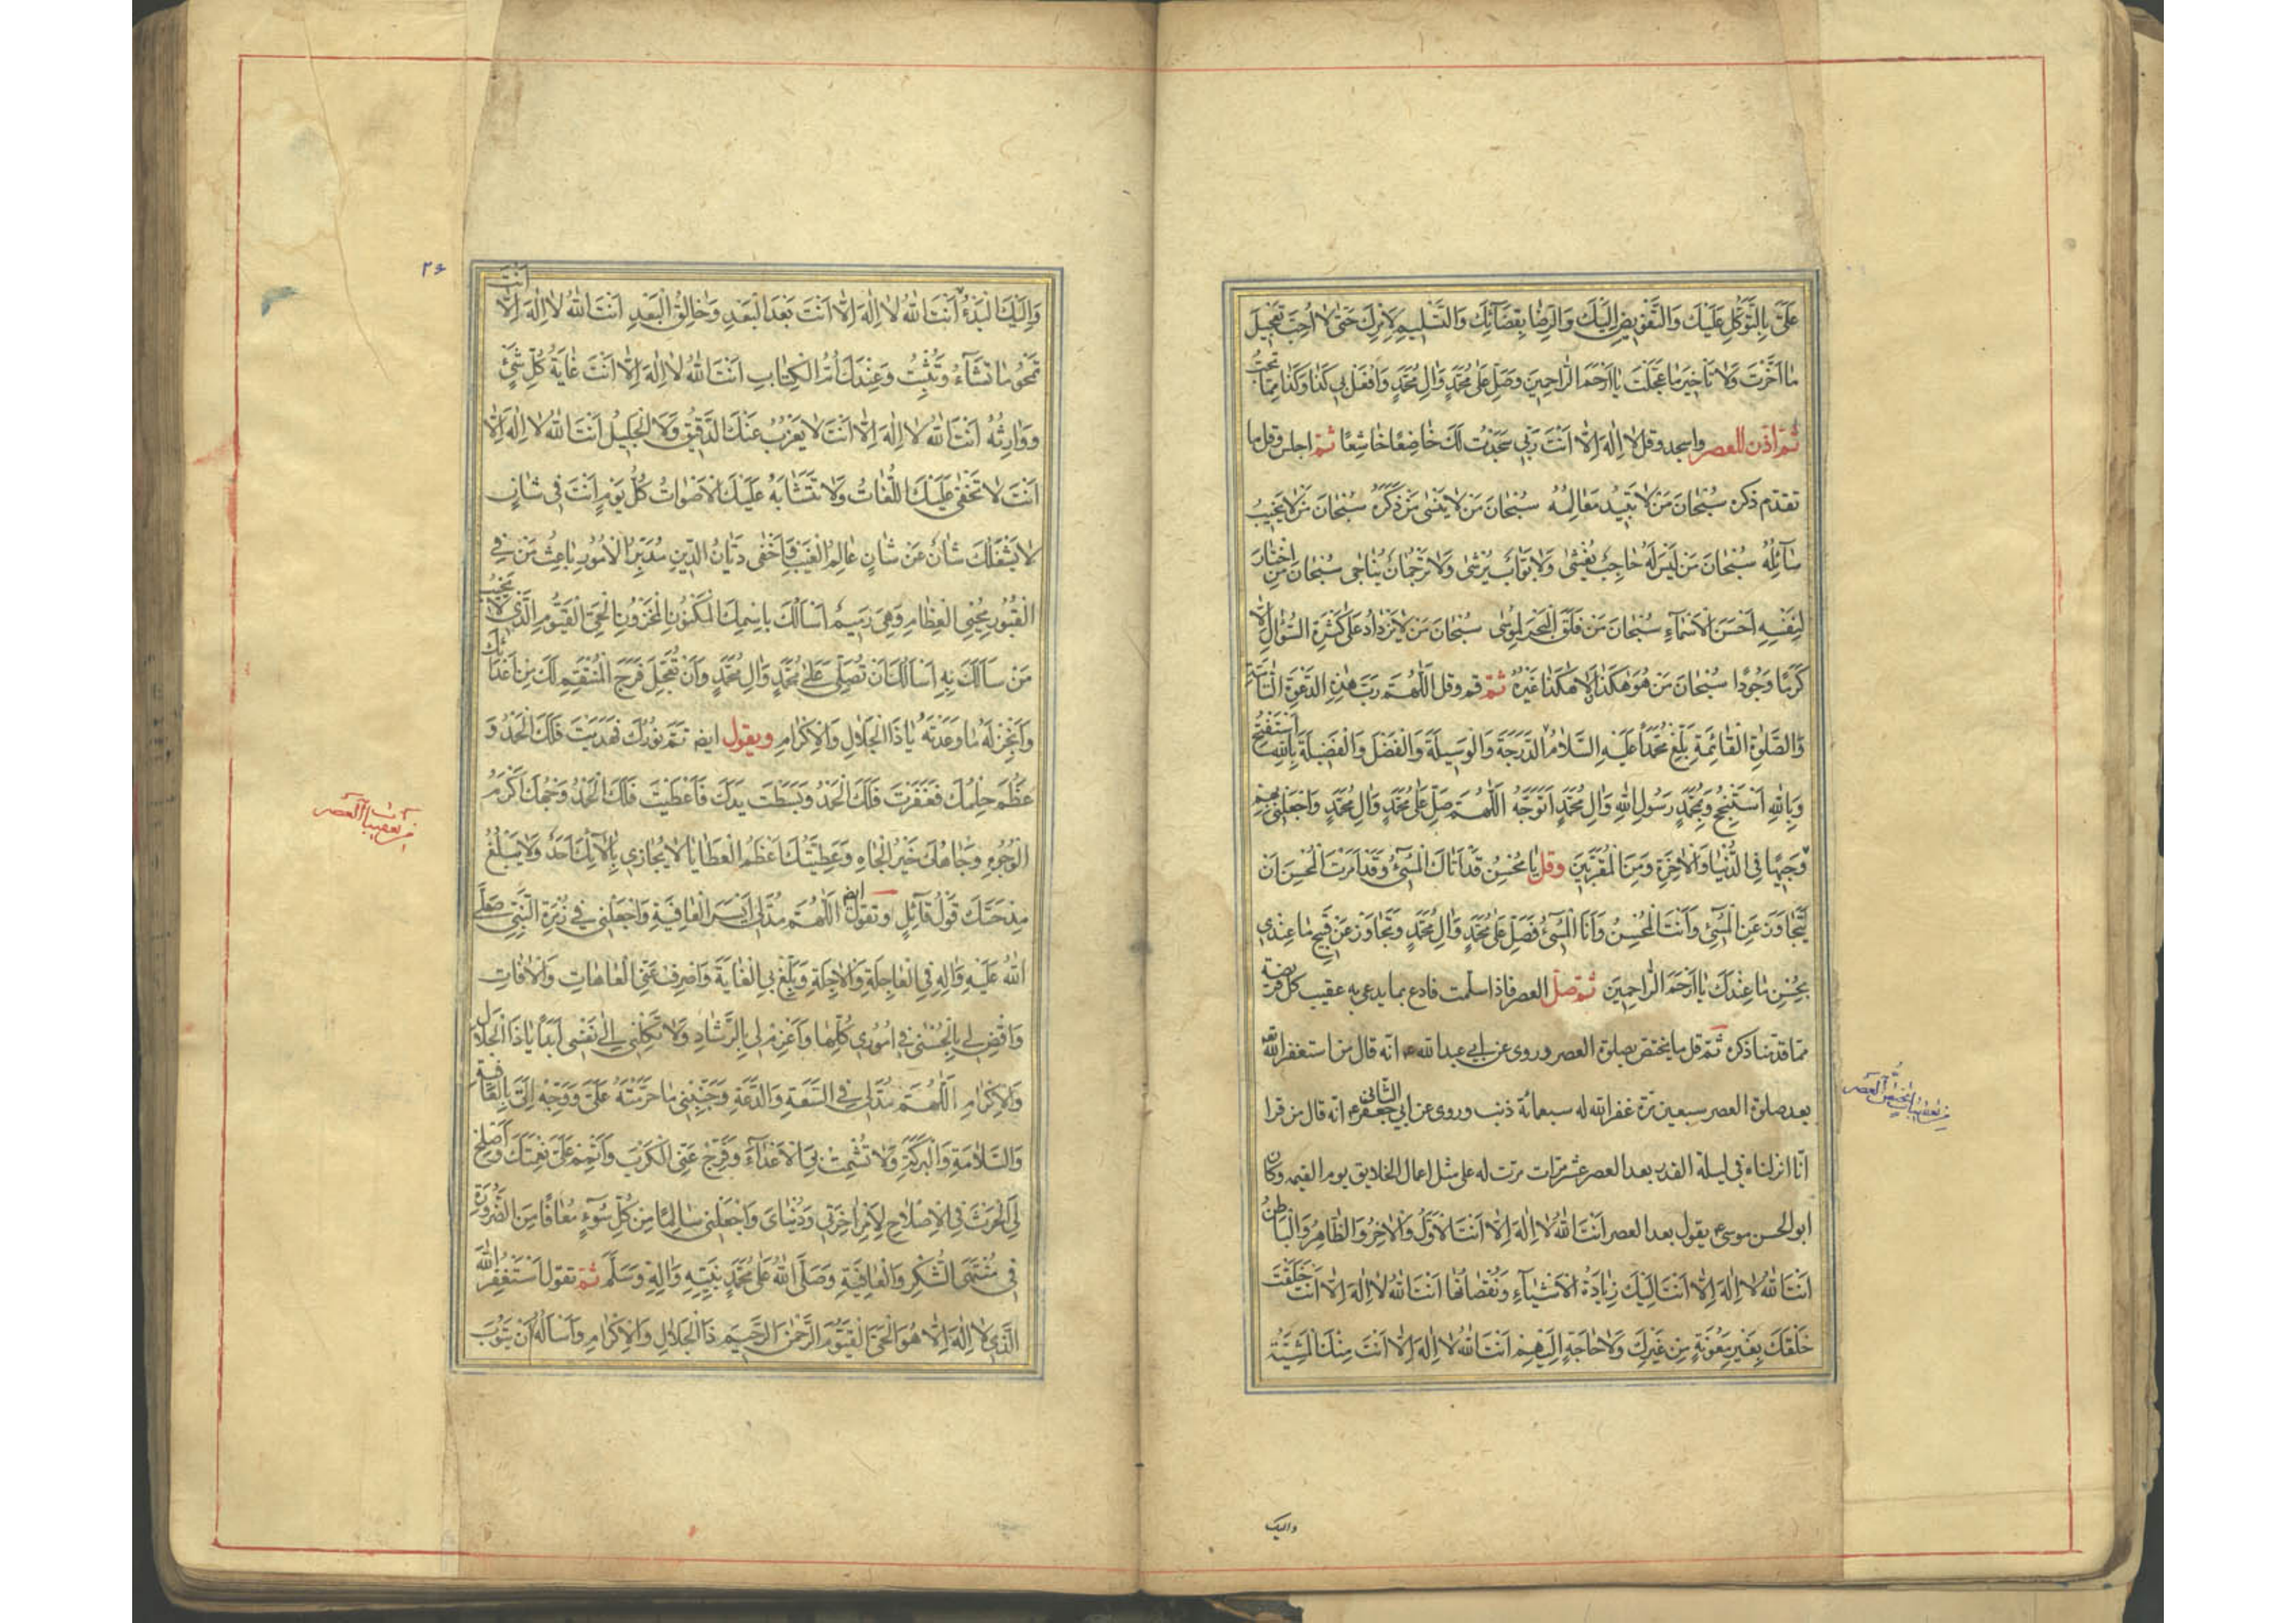 عَلَیَّ بِالتَّوَكُّلِ عَلَيْكَ وَالتَّفْوِيضِ اِلَيْكَ وَالرِّضَا بِقَضَآئِكَ وَالتَّسْلِيمِ لِاَمْرِكَ حَتّٰى لاٰ اُحِبَّ تَعْجِيلَ
مٰا اَخَّرْتَ وَلاٰ تَأخِيرَ مٰا عَجَّلْتَ يٰا اَرْحَمَ الرّٰاحِمِينَ وَصَلِّ عَلٰى مُحَمَّدٍ وَاٰلِ مُحَمَّدٍ وَافْعَلْ بِي كَذٰا وَكَذٰا مِمّٰا تُحِبُّ
ثُمَّ اذّن للعصر واسجد وقل لاٰ اِلٰهَ اِلّٰا اَنْتَ رَبِّي سَجَدْتُ لَكَ خٰاضِعًا خٰاشِعًا ثُمَّ اجلس وقل ما
تقدّم ذكره سُبْحٰانَ مَنْ لاٰ تَبِيدُ مَعٰالِمُهُ سُبْحٰانَ مَنْ لاٰ يَنْسٰى مَنْ ذَكَرَهُ سُبْحٰانَ مَنْ لاٰ يَخِيبُ
سٰآئِلُهُ سُبْحٰانَ مَنْ لَيْسَ لَهُ حٰاجِبٌ يُغْشٰى وَلاٰ بَوّٰابٌ يُرْشٰى وَلاٰ تَرْجُمٰانٌ يُنٰاجٰى سُبْحٰانَ مَنِ اخْتٰارَ
لِنَفْسِهِ اَحْسَنَ الْاَسْمٰآءِ سُبْحٰانَ مَنْ فَلَقَ الْبَحْرَ لِمُوسٰى سُبْحٰانَ مَنْ لاٰ يَزْدٰادُ عَلٰى كَثْرَةِ السُّؤٰالِ اِلّٰا
كَرَمًا وَجُودًا سُبْحٰانَ مَنْ هُوَ هٰكَذٰا وَلاٰ هٰكَذٰا غَيْرُهُ ثُمَّ قم وقل اَللّٰهُمَّ رَبَّ هٰذِهِ الدَّعْوَةِ التّٰآمَّةِ
وَالصَّلوٰةِ الْقٰائِمَةِ بَلِّغْ مُحَمَّدًا عَلَيْهِ السَّلاٰمُ الدَّرَجَةَ وَالْوَسِيلَةَ وَالْفَضْلَ وَالْفَضِيلَةَ بِاللّٰهِ اَسْتَفْتِحُ
وَبِاللّٰهِ اَسْتَنْجِحُ وَبِمُحَمَّدٍ رَسُولِ اللّٰهِ وَاٰلِ مُحَمَّدٍ اَتَوَجَّهُ اَللّٰهُمَّ صَلِّ عَلٰى مُحَمَّدٍ وَاٰلِ مُحَمَّدٍ وَاجْعَلْنِي بِهِمْ
وَجِيهًا فِي الدُّنْيٰا وَالْاٰخِرَةِ وَمِنَ الْمُقَرَّبِينَ وقل يٰا مُحْسِنُ قَدْ اَتٰاكَ الْمُسِٓيءُ وَقَدْ اَمَرْتَ الْمُحْسِنَ اَنْ
يَتَجٰاوَزَ عَنِ الْمُسِٓيءِ وَاَنْتَ الْمُحْسِنُ وَاَنَا الْمُسِٓيءُ فَصَلِّ عَلٰى مُحَمَّدٍ وَاٰلِ مُحَمَّدٍ وَتَجٰاوَزْ عَنْ قَبِيحِ مٰا عِنْدِي
بِحُسْنِ مٰا عِنْدَكَ يٰا اَرْحَمَ الرّٰاحِمِينَ ثُمَّ صلّ العصر فاذا سلّمت فادع بما يدعى به عقيب كل فريضة
ممّا قدّمنا ذكره ثمّ قل ما يختصّ بصلوة العصر وروى عن ابي عبدالله ع انّه قال من استغفر اللّٰه
بعد صلوة العصر سبعين مرّة غفر الله له سبعمائة ذنب وروى عن ابي جعفر الثاني ع انه قال من قرا
انّا انزلناه في ليلة القدر بعد العصر عشر مرّات مرّت له على مثل اعمال الخلايق يوم القيمه وكان
ابو الحسن موسى ع يقول بعد العصر اَنْتَ اللّٰهُ لاٰ اِلٰهَ اِلّٰا اَنْتَ الْاَوَّلُ وَالْاٰخِرُ وَالظّٰاهِرُ وَالْبٰاطِنُ
اَنْتَ اللّٰهُ لاٰ اِلٰهَ اِلّٰا اَنْتَ اِلَيْكَ زِيٰادَةُ الْاَشْيٰآءِ وَنُقْصٰانُهٰا اَنْتَ اللّٰهُ لاٰ اِلٰهَ اِلّٰا اَنْتَ خَلَقْتَ
خَلْقَكَ بِغَيْرِ مَعُونَةٍ مِنْ غَيْرِكَ وَلاٰ حٰاجَةٍ اِلَيْهِمْ اَنْتَ اللّٰهُ لاٰ اِلٰهَ اِلّٰا اَنْتَ مِنْكَ الْمَشِيَّةُ
واليك
من تعقيبات العصر
٢٤
وَاِلَيْكَ الْبَدْءُ اَنْتَ اللّٰهُ لاٰ اِلٰهَ اِلّٰا اَنْتَ بَعْدَ الْبَعْدِ وَخٰالِقُ الْبَعْدِ اَنْتَ اللّٰهُ لاٰ اِلٰهَ اِلّٰا اَنْتَ
تَمْحُو مٰا تَشٰآءُ وَتُثْبِتُ وَعِنْدَكَ اُمُّ الْكِتٰابِ اَنْتَ اللّٰهُ لاٰ اِلٰهَ اِلّٰا اَنْتَ غٰايَةُ كُلِّ شَيْءٍ
وَوٰارِثُهُ اَنْتَ اللّٰهُ لاٰ اِلٰهَ اِلّٰا اَنْتَ لاٰ يَعْزُبُ عَنْكَ الدَّقِيقُ وَلاَ الْجَلِيلُ اَنْتَ اللّٰهُ لاٰ اِلٰهَ اِلّٰا
اَنْتَ لاٰ تَخْفٰى عَلَيْكَ اللُّغٰاتُ وَلاٰ تَتَشٰابَهُ عَلَيْكَ الْاَصْوٰاتُ كُلَّ يَوْمٍ اَنْتَ فِي شٰانٍ
لاٰ يَشْغَلُكَ شٰانٌ عَنْ شٰانٍ عٰالِمُ الْغَيْبِ وَاَخْفٰى دَيّٰانُ الدِّينِ مُدَبِّرُ الْاُمُورِ بٰاعِثُ مَنْ فِي
الْقُبُورِ مُحْيِي الْعِظٰامِ وَهِيَ رَمِيمٌ اَسْاَلُكَ بِاسْمِكَ الْمَكْنُونِ الْمَخْزُونِ الْحَيِّ الْقَيُّومِ الَّذِي لاٰ يَخِيبُ
مَنْ سَاَلَكَ بِهِ اَسْاَلُكَ اَنْ تُصَلِّيَ عَلٰى مُحَمَّدٍ وَاٰلِ مُحَمَّدٍ وَاَنْ تُعَجِّلَ فَرَجَ الْمُنْتَقِمِ لَكَ مِنْ اَعْدٰائِكَ
وَاَنْجِزْ لَهُ مٰا وَعَدْتَهُ يٰا ذَا الْجَلاٰلِ وَالْاِكْرٰامِ ويقول ايضا تَمَّ نُورُكَ فَهَدَيْتَ فَلَكَ الْحَمْدُ وَ
عَظُمَ حِلْمُكَ فَغَفَرْتَ فَلَكَ الْحَمْدُ وَبَسَطْتَ يَدَكَ فَاَعْطَيْتَ فَلَكَ الْحَمْدُ وَجْهُكَ اَكْرَمُ
الْوُجُوهِ وَجٰاهُكَ خَيْرُ الْجٰاهِ وَعَطِيَّتُكَ اَعْظَمُ الْعَطٰايٰا لاٰ يُجٰازِي بِاٰلاٰئِكَ اَحَدٌ وَلاٰ يَبْلُغُ
مِدْحَتَكَ قَوْلُ قٰآئِلٍ وتقول ايضا اَللّٰهُمَّ مُدَّ لِي اَيْسَرَ الْعٰافِيَةِ وَاجْعَلْنِي فِي زُمْرَةِ النَّبِيِّ صَلَّى
اللّٰهُ عَلَيْهِ وَاٰلِهِ فِي الْعٰاجِلَةِ وَالْاٰجِلَةِ وَبَلِّغْ بِيَ الْغٰايَةَ وَاصْرِفْ عَنِّي الْعٰاهٰاتِ وَالْاٰفٰاتِ
وَاقْضِ لِي بِالْحُسْنٰى فِي اُمُورِي كُلِّهٰا وَاعْزِمْ لِي بِالرَّشٰادِ وَلاٰ تَكِلْنِي اِلٰى نَفْسِي اَبَدًا يٰا ذَا الْجَلاٰلِ
وَالْاِكْرٰامِ اَللّٰهُمَّ مُدَّ لِي فِي السَّعَةِ وَالدَّعَةِ وَجَنِّبْنِي مٰا حَرَّمْتَهُ عَلَيَّ وَوَجِّهْ اِلَيَّ بِالْعٰافِيَةِ
وَالسَّلاٰمَةِ وَالْبَرَكَةِ وَلاٰ تُشْمِتْ بِيَ الْاَعْدٰآءَ وَفَرِّجْ عَنِّي الْكَرْبَ وَاَتْمِمْ عَلَيَّ نِعْمَتَكَ وَاَصْلِحْ
لِيَ الْحَرْثَ فِي الْاِصْلاٰحِ لِاَمْرِ اٰخِرَتِي وَدُنْيٰايَ وَاجْعَلْنِي سٰالِمًا مِنْ كُلِّ سُوٓءٍ مُعٰافًا مِنَ الضَّرُورَةِ
فِي مُنْتَهَى الشُّكْرِ وَالْعٰافِيَةِ وَصَلَّى اللّٰهُ عَلٰى مُحَمَّدٍ نَبِيِّهِ وَاٰلِهِ وَسَلَّمَ ثُمَّ تقول اَسْتَغْفِرُ اللّٰهَ
الَّذِي لاٰ اِلٰهَ اِلّٰا هُوَ الْحَيَّ الْقَيُّومَ الرَّحْمٰنَ الرَّحِيمَ ذَا الْجَلاٰلِ وَالْاِكْرٰامِ وَاَسْاَلُهُ اَنْ يَتُوبَ
من تعقيبات العصر